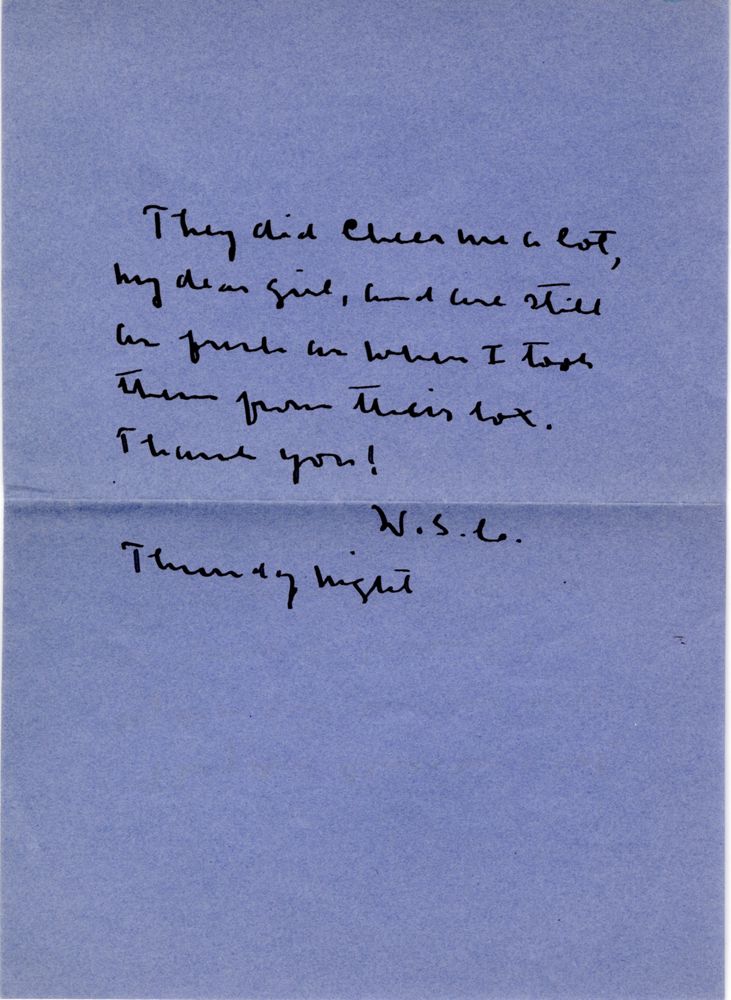 They did cheer me a lot,
my dear girl, and are still
as fresh as when I took
them from their box.
Thank you!
W.S.L.
Thursday night